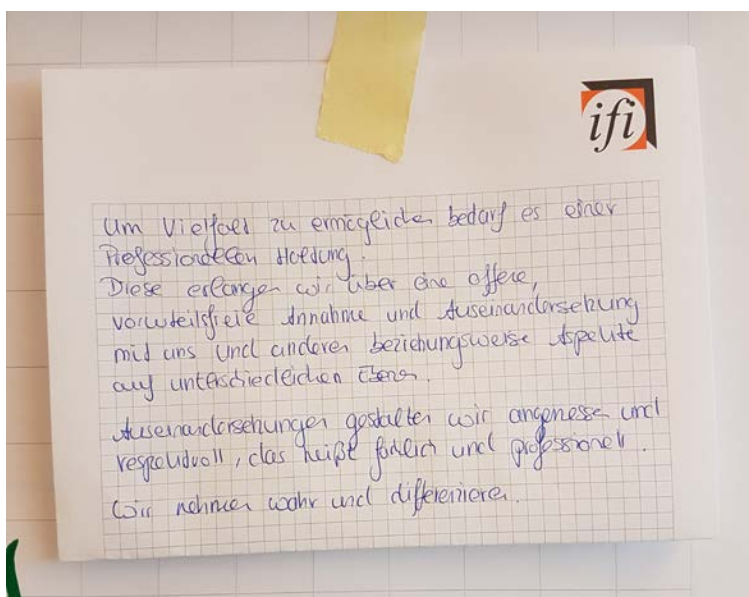 ifi
Um Vielfalt zu ermöglichen bedarf es einer
Professionellen Haltung.
Diese erlangen wir über eine offene,
vorurteilsfreie Annahme und Auseinandersetzung
mit uns und anderen beziehungsweise Aspekte
auf unterschiedlichen Ebenen.
Auseinandersetzungen gestalten wir angemessen und
respektvoll, das heißt fachlich und professionell.
Wir nehmen wahr und differenzieren.